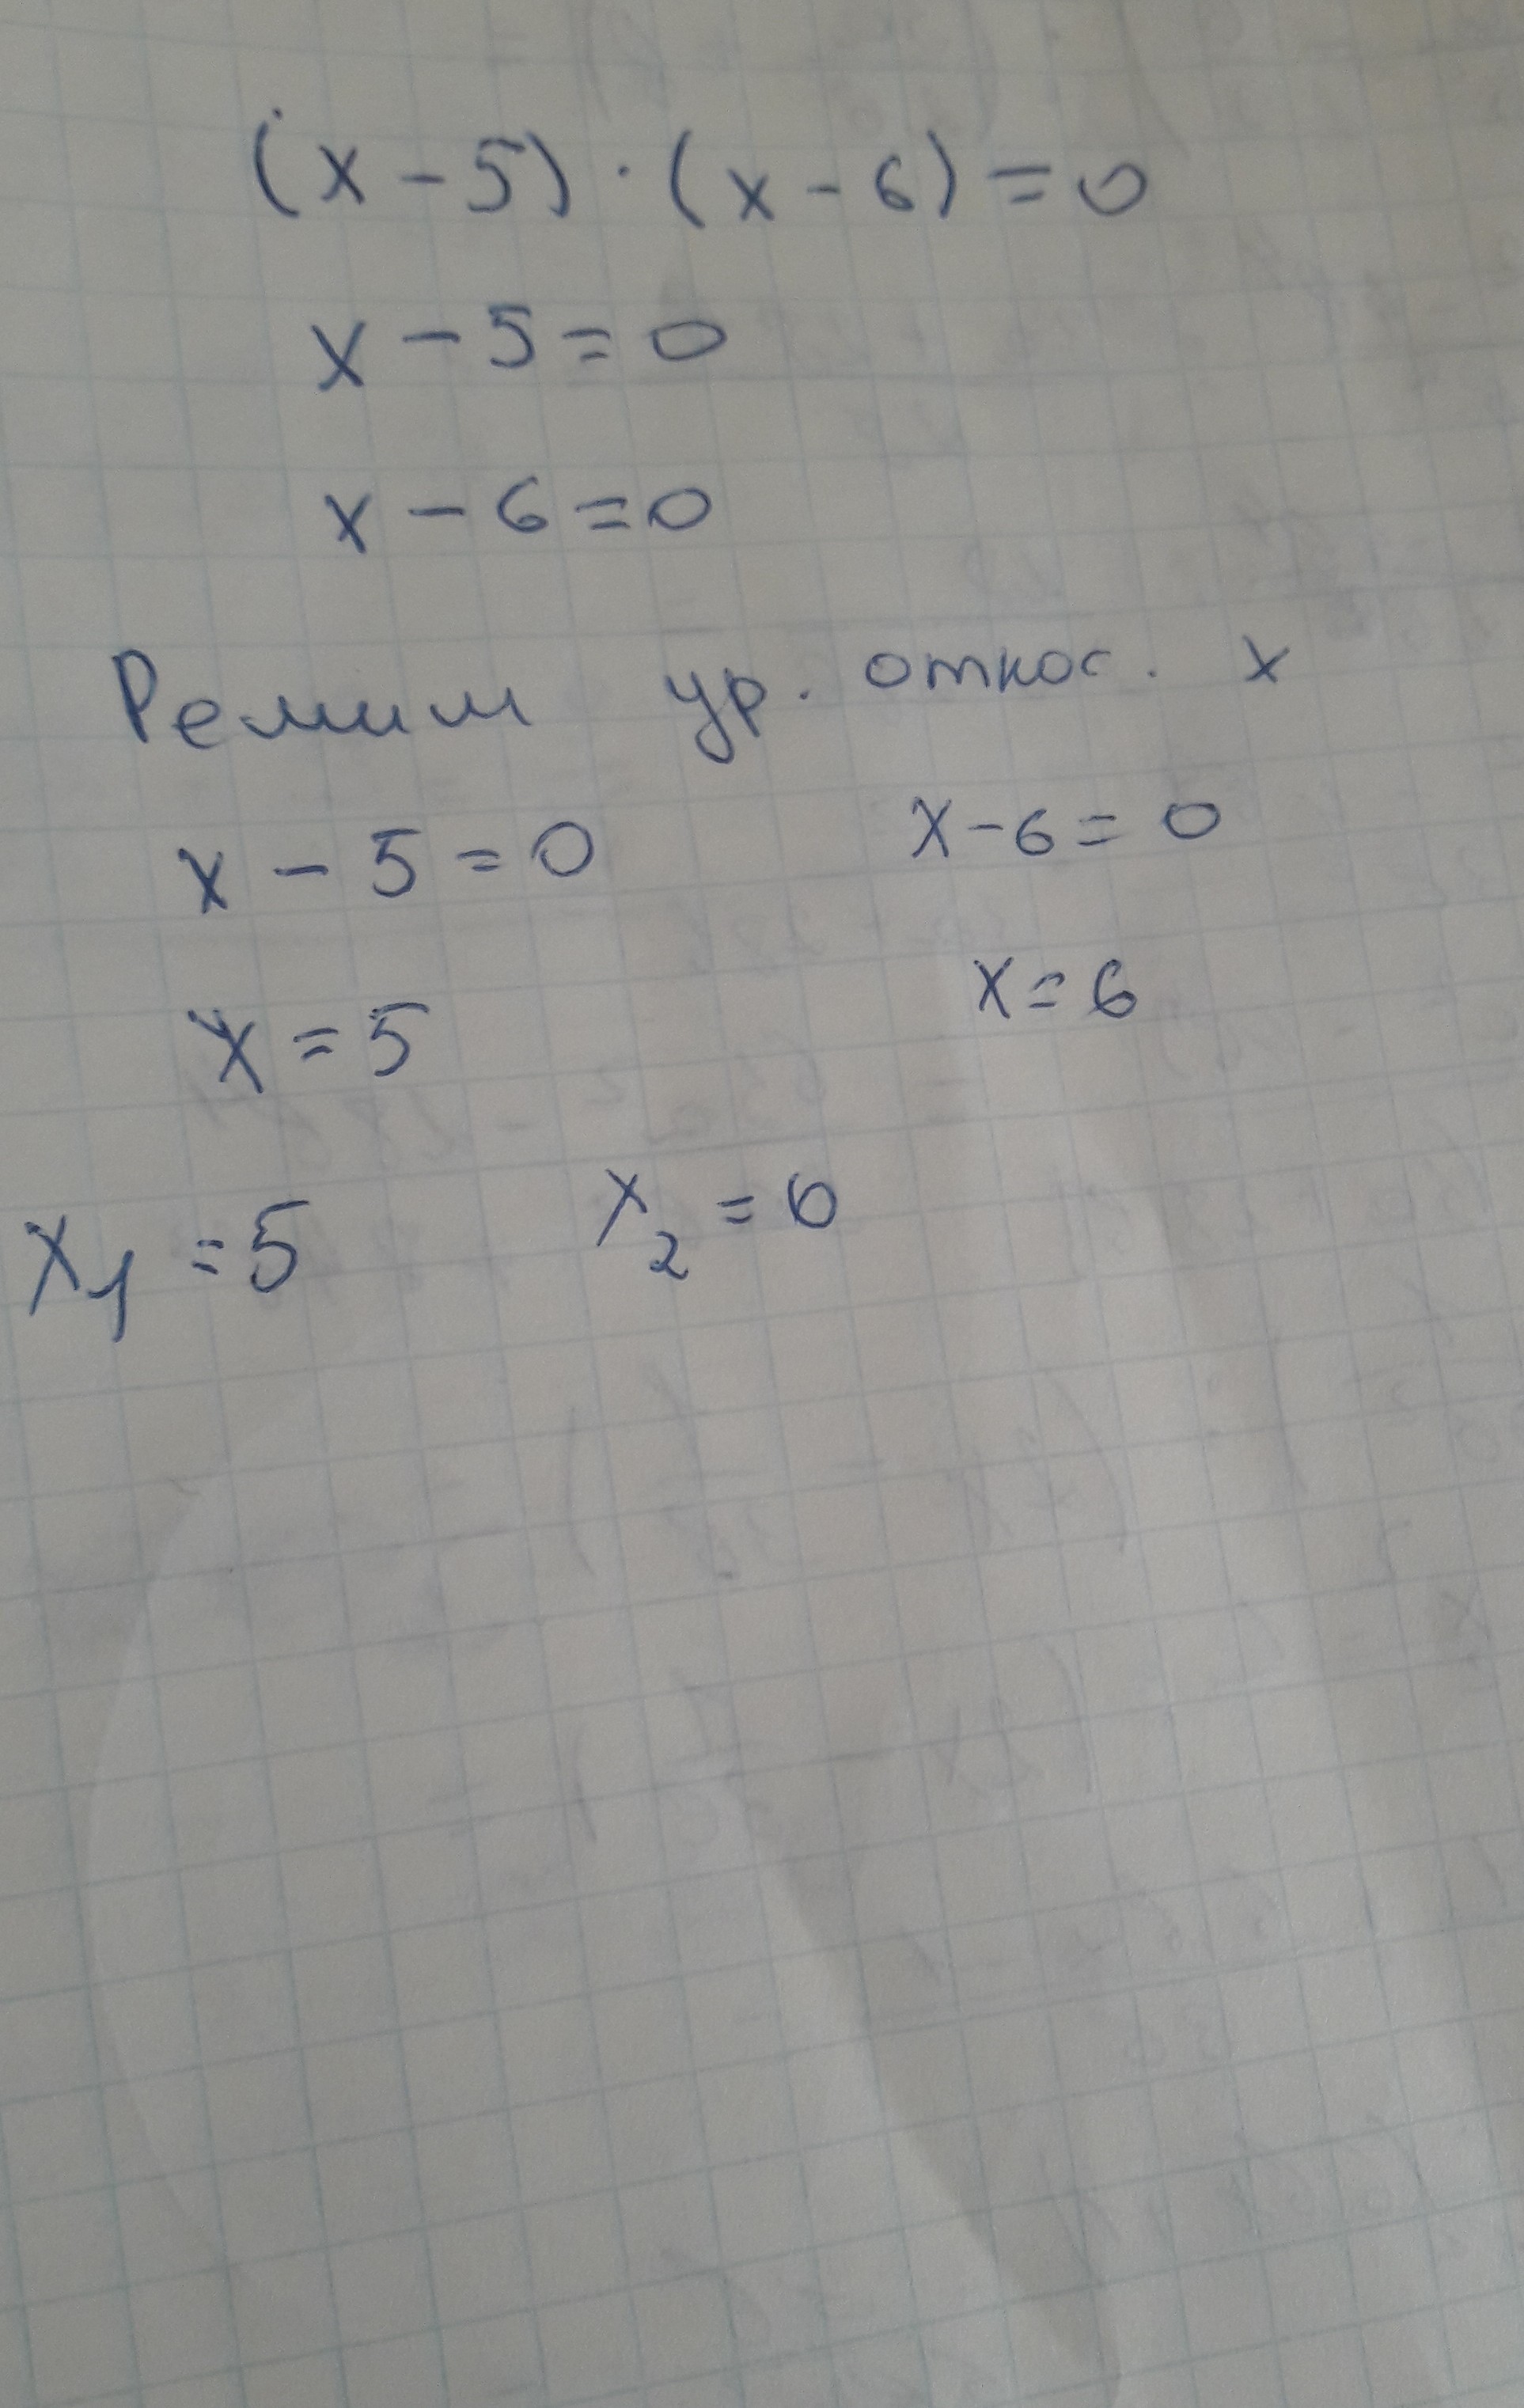 (x - 5) · (x - 6) = 0
x - 5 = 0
x - 6 = 0
Решим ур. относ. x
x - 5 = 0 x - 6 = 0
x = 5 x = 6
x₁ = 5 x₂ = 6